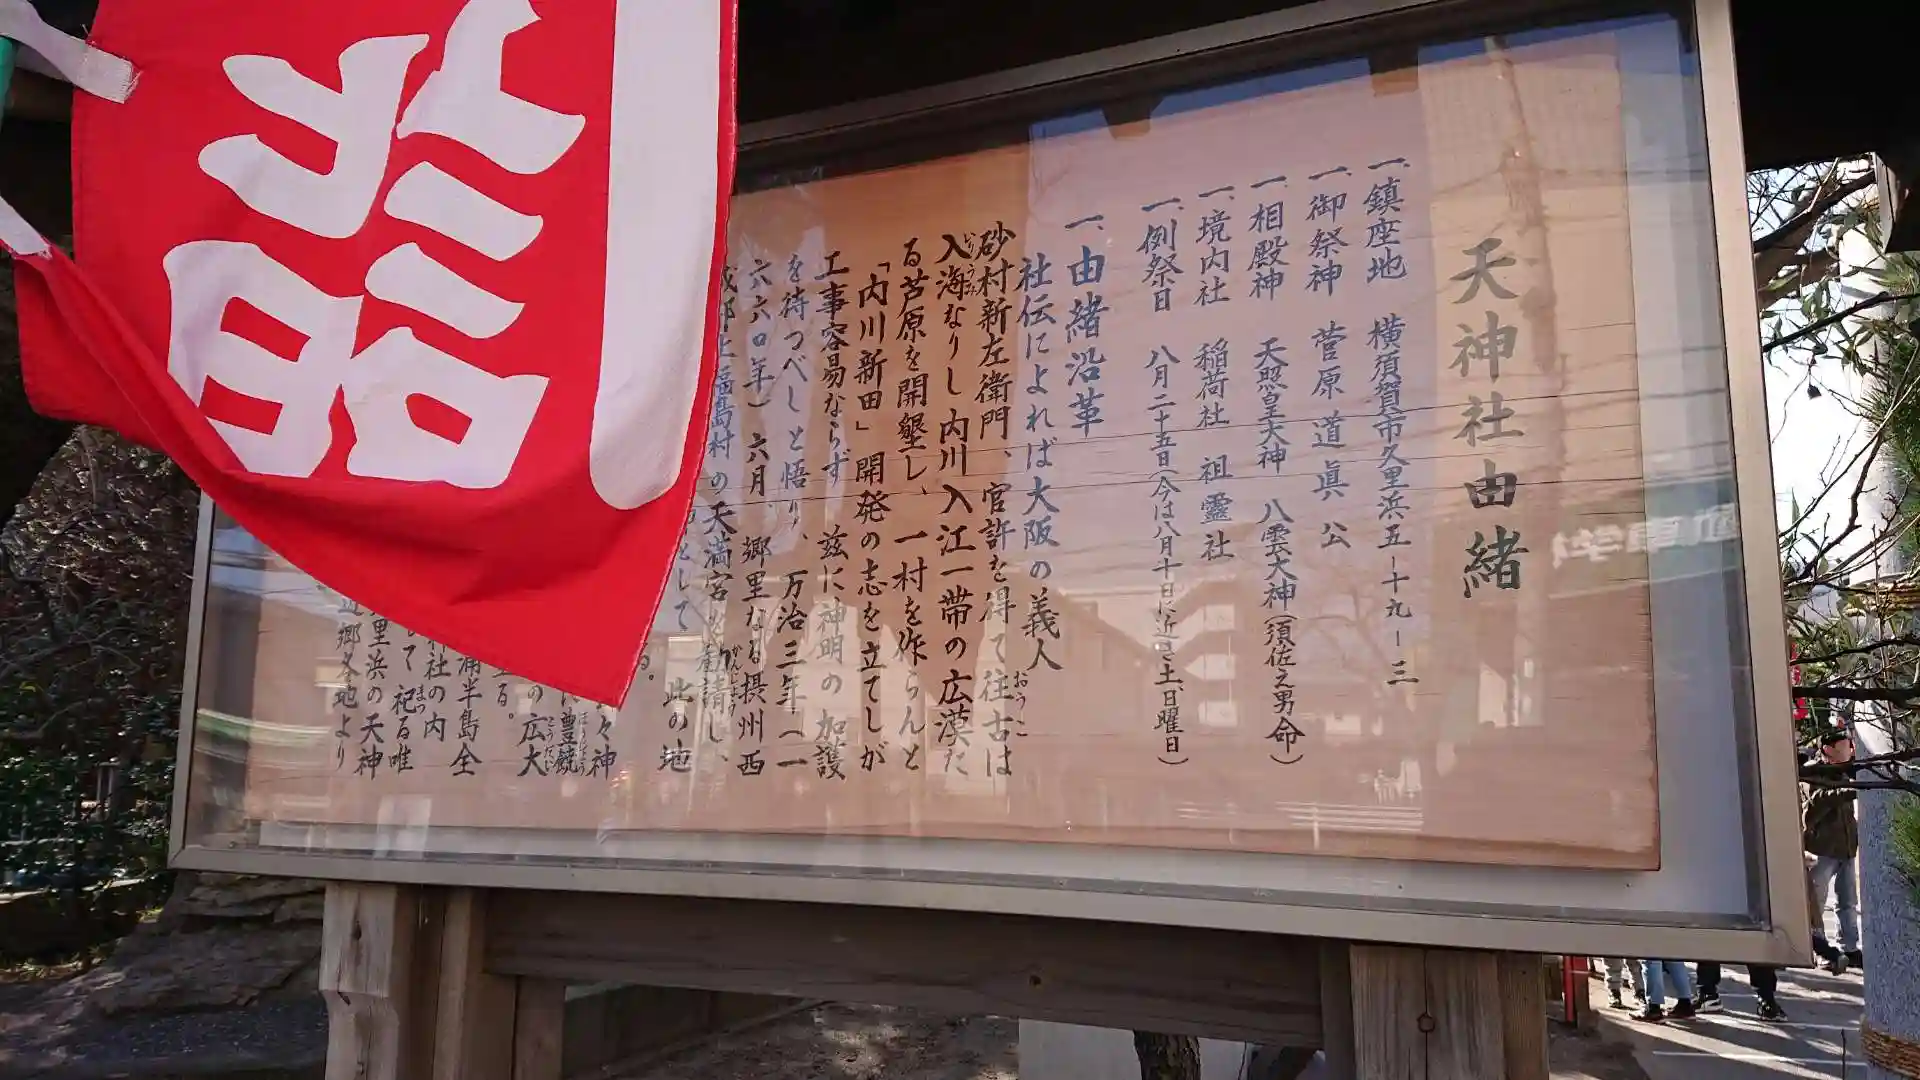 天神社由緒
一、鎮座地 横須賀市久里浜五ー十九ー三
一、御祭神 菅原道眞公
一、相殿神 天照皇大神 八雲大神(須佐之男命)
一、境内社 稲荷社 祖靈社
一、例祭日 八月二十五日(今は八月十日に近き土、日曜日)
一、由緒沿革
社伝によれば大阪の義人
砂村新左衛門、官許を得て往古は
おうこ
入海なりし内川入江一帯の広漠た
いりうみ
る芦原を開墾し、一村を作らんと
「内川新田」開発の志を立てしが
工事容易ならず 茲に神明の加護
を待つべしと悟り、万治三年(一
六六〇年)六月、郷里なる摂州西
成郡上福島村の天満宮を勧請し、
かんじょう
として 此の地
る。
々神
に豊饒
ほうじょう
の広大
こうだい
る。
浦半島全
社の内
して祀る唯
まつ
里浜の天神
近郷各地より